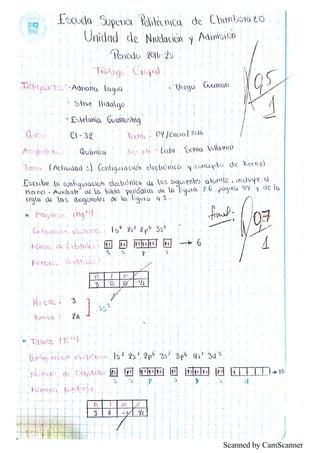 Escuela Superior Politécnica de Chimborazo
Unidad de Nivelación y Admisión
Periodo 2016-25
Trabajo Grupal
Integrantes: - Adriana Lagua • Diego Guaman
95/1
• Steve Hidalgo
• Estefania
Curso: CI-32 Fecha: 04/Enero/2016
Asignatura: Química
Tema: (Actividad 5) Configuración electrónica y concepto de Kernel
Escribe la configuración electrónica de los siguientes átomos, incluye el
Kernel. Auxíliate de la tabla periódica de la figura 2.6 página 44 y de la
regla de las diagonales de la figura 4.5.
final:
07/1
• Magnesio (Mg
Configuración electrónica: 1s² 2s² 2p⁶ 3s²
Número de Orbitales: → 6
s s p s
Números Cuánticos:
n l m
3 0 0 ½
Periodo: 3
3s²
2A
• Titanio (Ti
Configuración electrónica: 1s² 2s² 2p⁶ 3s² 3p⁶ 4s² 3d²
Número de Orbitales → 15
s s p s p s d
Números Cuánticos:
n l m
Scanned by CamScanner